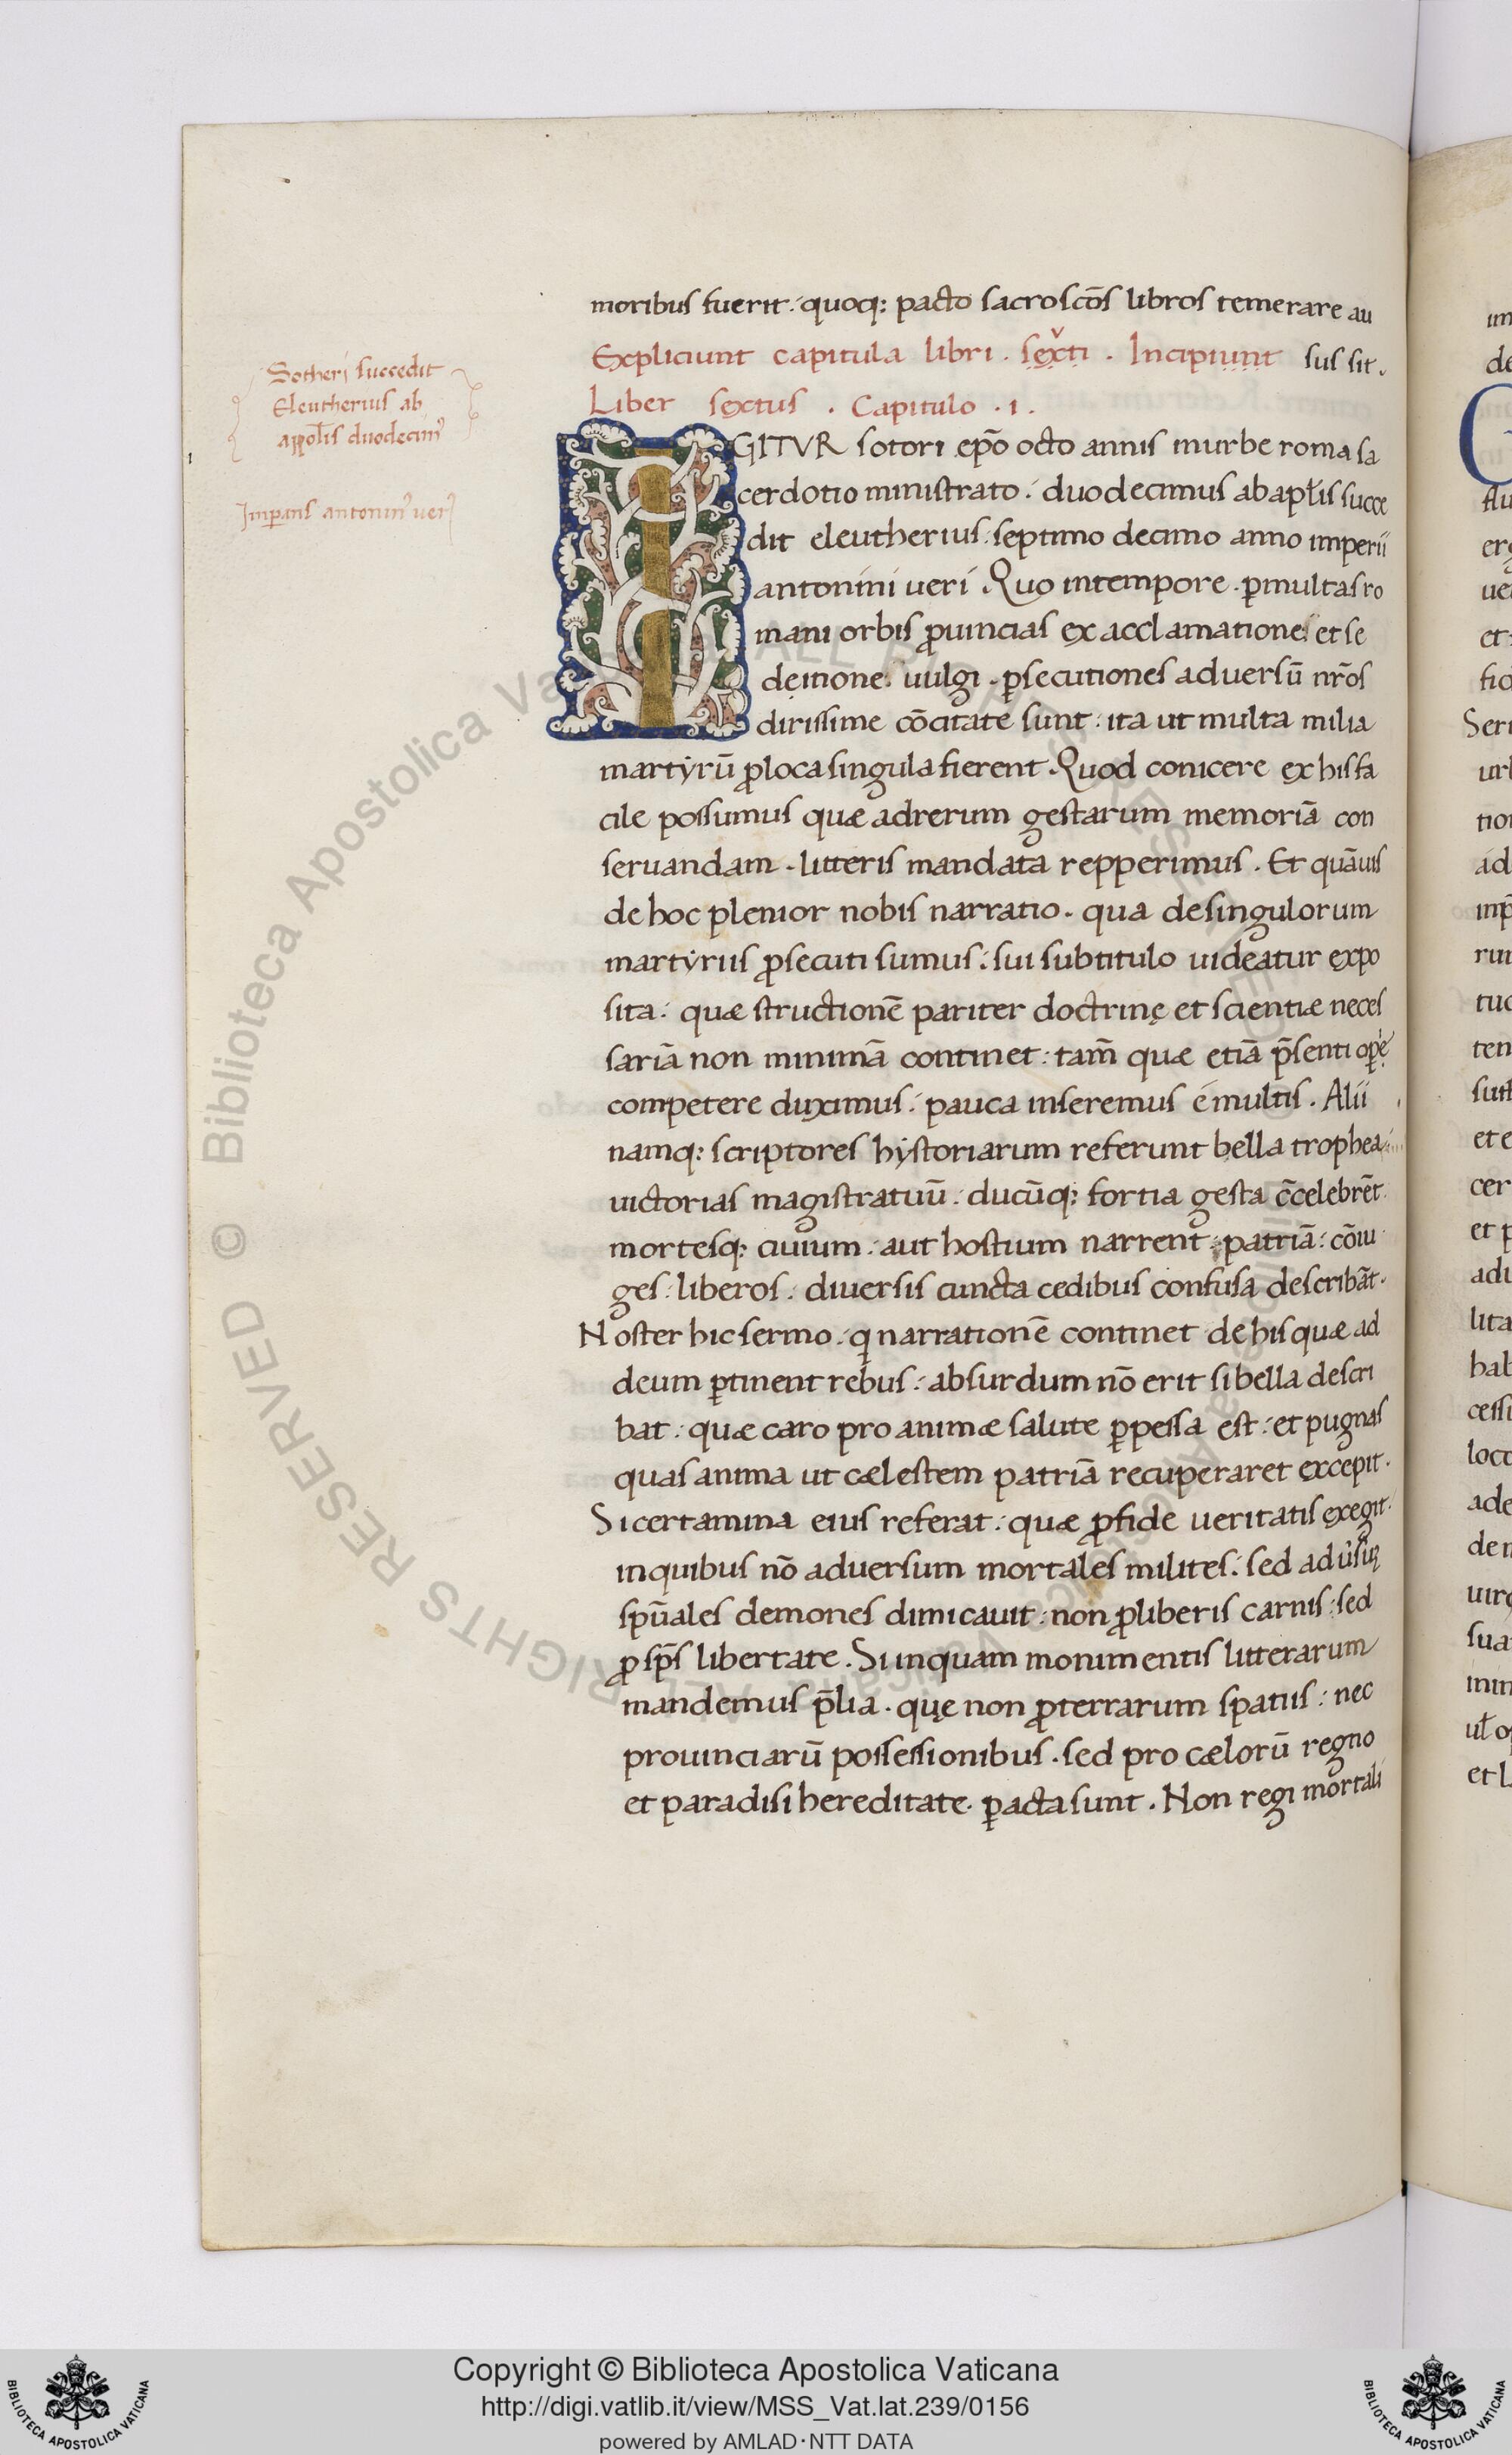 moribus fuerit. quoq: pacto sacroscōs libros temerare au
Expliciunt capitula libri. sexti. Incipiunt sus sit.
Liber sextus. Capitulo .i.
IGITVR sotori ep̄o octo annis inurbe roma sa
cerdotio ministrato. duodecimus ab aptlis succe
dit eleutherius. septimo decimo anno imperii
antonini veri. Quo intempore. ꝑmultas ro
mani orbis ꝓuincias ex acclamatione et se
ditione vulgi. ꝑsecutiones adversū nr̄os
dirissime cōcitate sunt: ita ut multa milia
martyrū ꝓloca singula fierent. Quod conicere ex his fa
cile possumus quæ adrerum gestarum memoriā con
seruandam. litteris mandata repperimus. Et quāuis
de hoc plenior nobis narratio. qua desingulorum
martyriis ꝓsecuti sumus: sui subtitulo uideatur expo
sita: quæ structionē pariter doctrinę et scientiæ neces
sariā non minimā continet: tam̄ quæ etiā p̄senti opere
competere duximus: pauca inseremus e multis. Alii
namq: scriptores hystoriarum referunt bella trophea
uictorias magistratuū. ducūq: fortia gesta c̄celebrēt.
mortesq: ciuium. aut hostium narrent: patriā: cōiu
ges: liberos: diuersis cuncta cedibus confusa describāt.
Noster hic sermo. qi narrationē continet de his quæ ad
deum ꝑtinent rebus: absurdum nō erit si bella descri
bat: quæ caro pro animæ salute ꝑpessa est: et pugnas
quas anima ut cælestem patriā recuperaret excepit.
Si certamina eius referat: quæ ꝓfide ueritatis exegit.
inquibus nō aduersum mortales milites: sed aduersus
spūales demones dimicauit: non ꝓliberis carnis: sed
ꝓ sp̄s libertate. Si inquam monimentis litterarum
mandemus p̄lia. quę non ꝓterrarum spatiis: nec
prouinciarū possessionibus. sed pro cælorū regno
et paradisi hereditate. ꝑacta sunt. Non regi mortali
Sotheri succedit
Eleutherius ab
appotlis duodecim9
Imꝑans antonin9 uer9
Copyright © Biblioteca Apostolica Vaticana
http://digi.vatlib.it/view/MSS_Vat.lat.239/0156
powered by AMLAD·NTT DATA
BIBLIOTECA APOSTOLICA VATICANA
BIBLIOTECA APOSTOLICA VATICANA